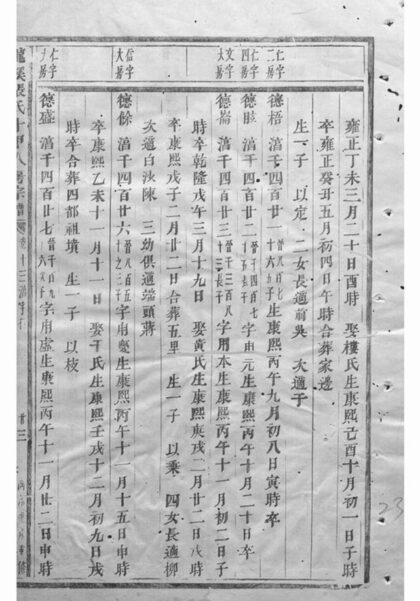 雍正丁未三月二十日酉時 娶樓氏生康熙己酉十月初一日子時
卒雍正癸丑五月初四日午時合葬家邊
生一子 以定 二女長適前吳 次適子
仁字
二房
德梧 湝千四百一十八 生康熙丙午九月初八日寅時卒
仁字
四房
德眩 湝千四百廿二 字由元生康熙丙午十月二十日卒
文字
大房
德崙 湝千四百廿三 字用本生康熙丙午十一月初二日子
時卒乾隆戊午三月十九日 娶黃氏生康熙庚戌二月廿二日戌時
卒康熙戊子二月廿二日合葬五里 生一子 以乘 四女長適柳
次適白沙陳 三幼俱適端頭蔣
信字
大房
德餘 湝千四百廿六 字南 生康熙丙午十一月十五日申時
卒康熙乙未十一月十一日 娶于氏生康熙壬戌十二月初九日戌
時卒合葬四都祖墳 生一子 以枝
仁字
房
德盛 湝千四百廿七 字南虛生康熙丙午十一月廿二日申時
龍溪張氏十甲八房宗譜
廿三
23